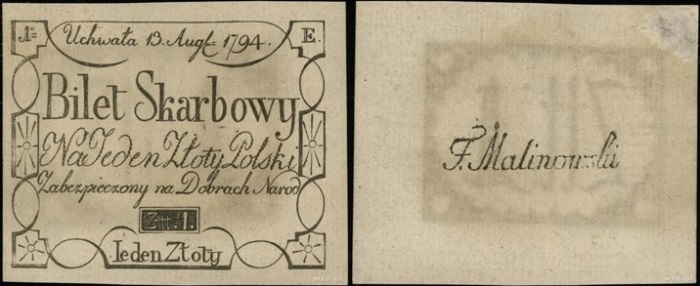 A= E.
Uchwała 13. Augt. 1794.
Bilet Skarbowy
Na Jeden Złoty Polski
Zabezpieczony na Dobrach Narod
Złł. 1.
Jeden Złoty
F. Malinowski